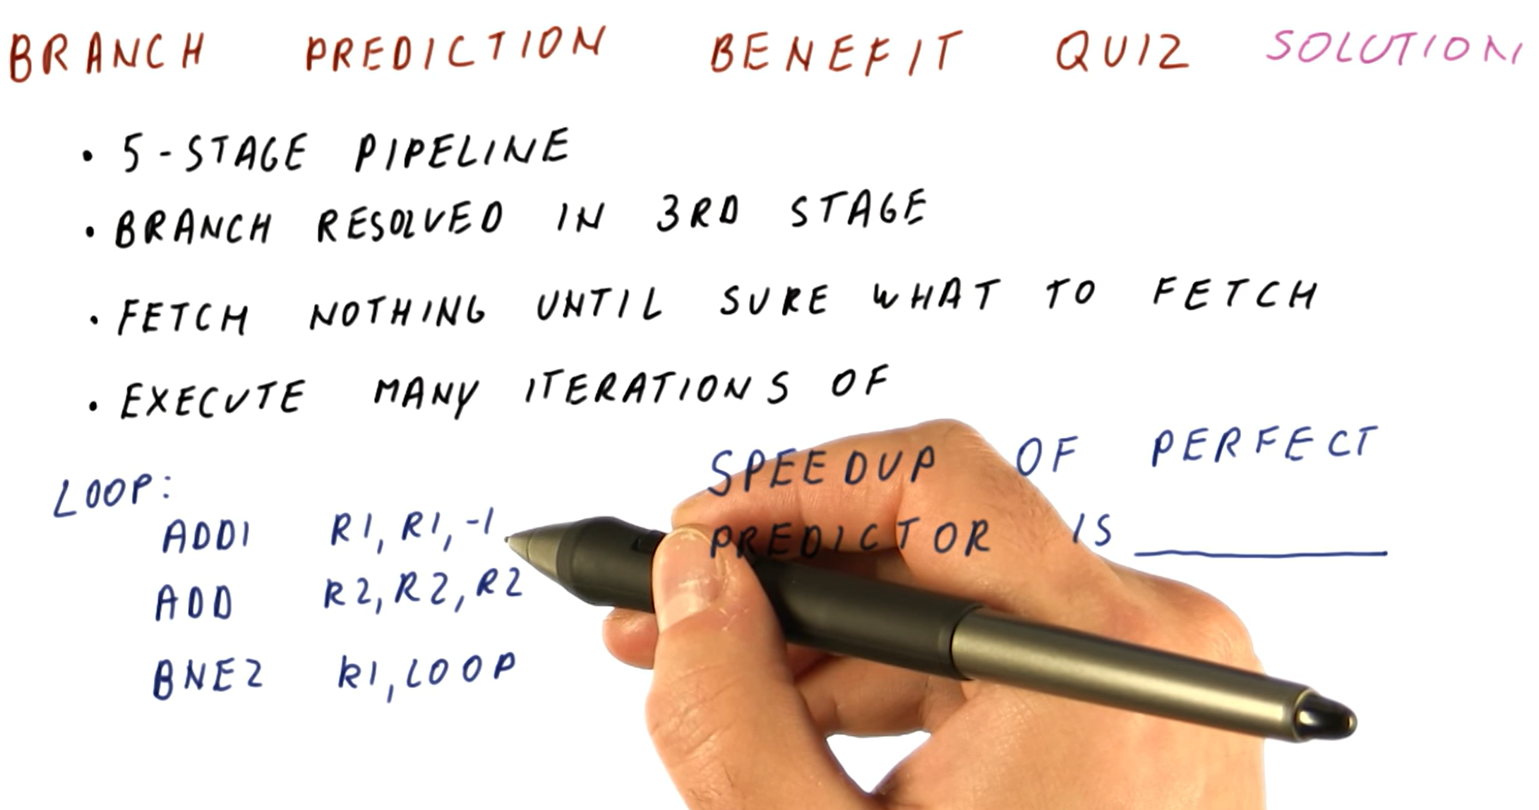 BRANCH PREDICTION BENEFIT QUIZ SOLUTION
• 5-STAGE PIPELINE
• BRANCH RESOLVED IN 3RD STAGE
• FETCH NOTHING UNTIL SURE WHAT TO FETCH
• EXECUTE MANY ITERATIONS OF
LOOP:
ADDI R1, R1, -1
ADD R2, R2, R2
BNEZ R1, LOOP
SPEEDUP OF PERFECT
PREDICTOR IS